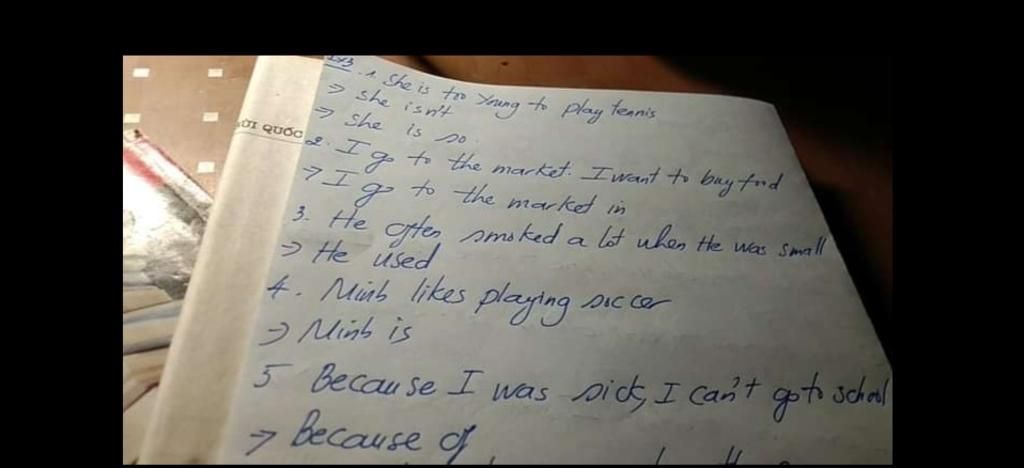 Ex3. 1. She is too young to play tennis
=> she isn't
=> She is so.
ƯỜI QUỐC
2. I go to the market. I want to buy food
=> I go to the market in
3. He often smoked a lot when He was small
=> He used
4. Minh likes playing soccer
=> Minh is
5 Because I was sick, I can't go to school
=> Because of